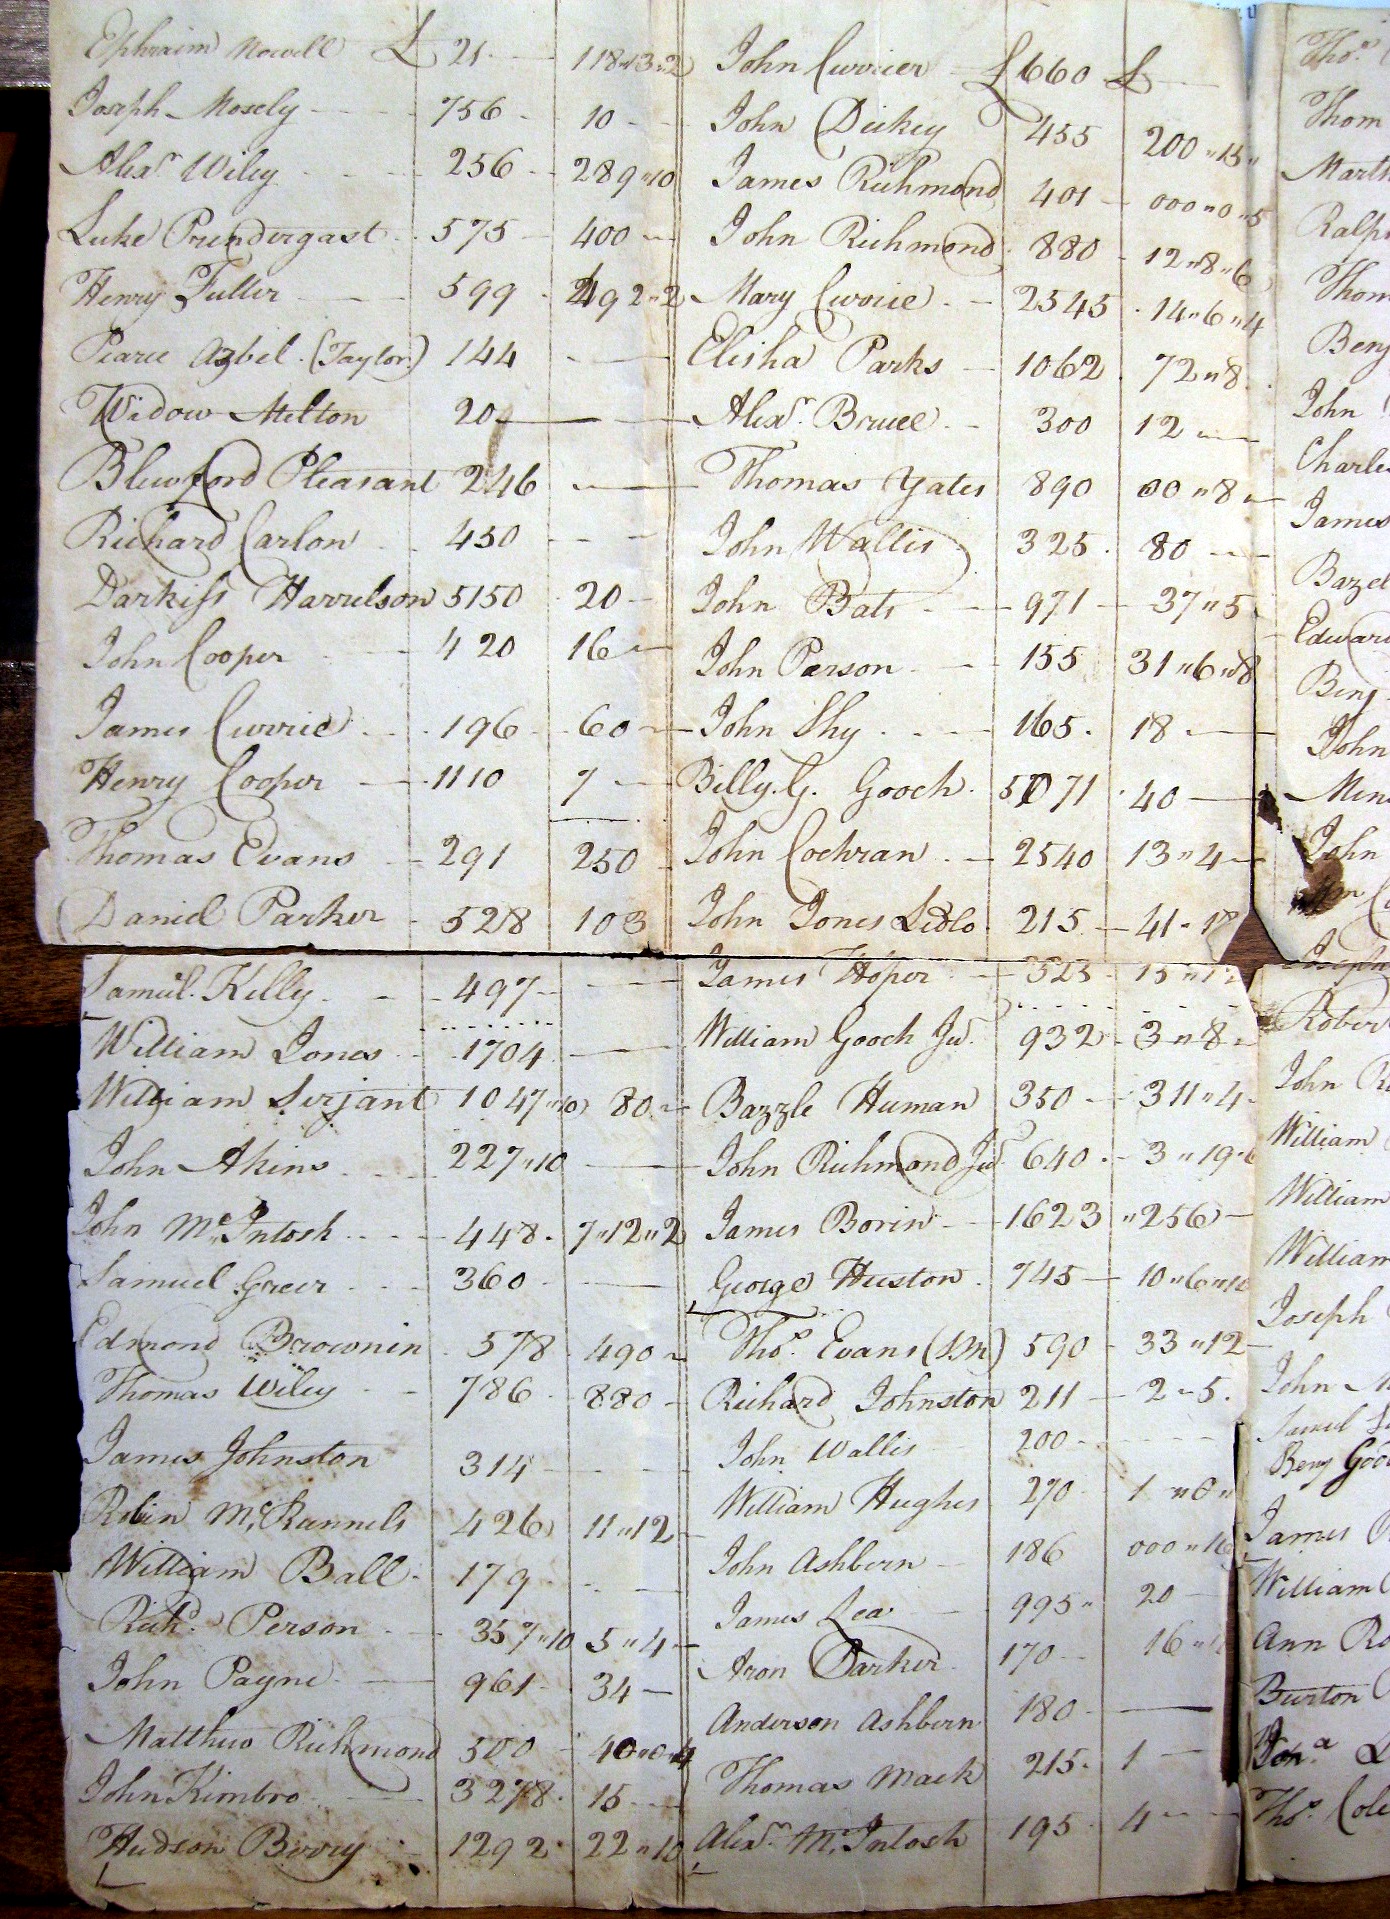 Ephraim Nowell £ 21 118"13"2
Joseph Mosely 756 10
Alexr Wiley 256 289"10
Luke Prendergast 575 400
Henry Fuller 599 492"2
Pearce Azbel (Taylor) 144
Widow Melton 20
Blewford Pleasant 246
Richard Carlon 450
Darkiss Harrelson 5150 20
John Cooper 420 16
James Currie 196 60
Henry Cooper 1110 7
Thomas Evans 291 250
Daniel Parker 528 103
Samuel Kelly 497
William Jones 1704
William Serjant 1047"10 80
John Akins 227"10
John McIntosh 448 7"12"2
Samuel Greer 360
Edmond Brownin 578 490
Thomas Wiley 786 880
James Johnston 314
Robin McRannels 426 11"12
William Ball 179
Richd Person 357"10 5"4
John Payne 961 34
Matthew Richmond 500 40"0"4
John Kimbro 3278 15
Hudson Berry 1292 22"10
John Currier £660 £
John Dickey 455 200"15"
James Richmond 401 000"0"5
John Richmond 880 12"8"6
Mary Currie 2545 14"6"4
Elisha Parks 1062 72"8
Alexr Bruce 300 12
Thomas Yates 890 00"8
John Wallis 325 80
John Bats 971 37"5
John Person 155 31"6"8
John Shy 165 18
Billy G. Gooch 5071 40
John Cochran 2540 13"4
John Jones Sedlo 215 41"18
James Hoper 323 15"
William Gooch Jur 932 3"8
Bazzle Human 350 311"4
John Richmond Jur 640 3"19"6
James Borin 1623 "256
George Huston 745 10"6"10
Thos Evans (Sm) 590 33"12
Richard Johnston 211 2"5
John Wallis 200
William Hughes 270 1"0"
John Ashbern 186 000"16
James Lea 995 20
Aron Parker 170 16"
Anderson Ashbern 180
Thomas Mack 215 1
Alexr McIntosh 195 4
Thos
Thom
Marth
Ralph
Thom
Benj
John
Charles
James
Bazel
Edward
Benj
John
John
Joseph
Robert
John
William
William
William
Joseph
John M
Samuel
Beny Goo
James
William
Ann Ro
Burton
Jona
Thos Cole